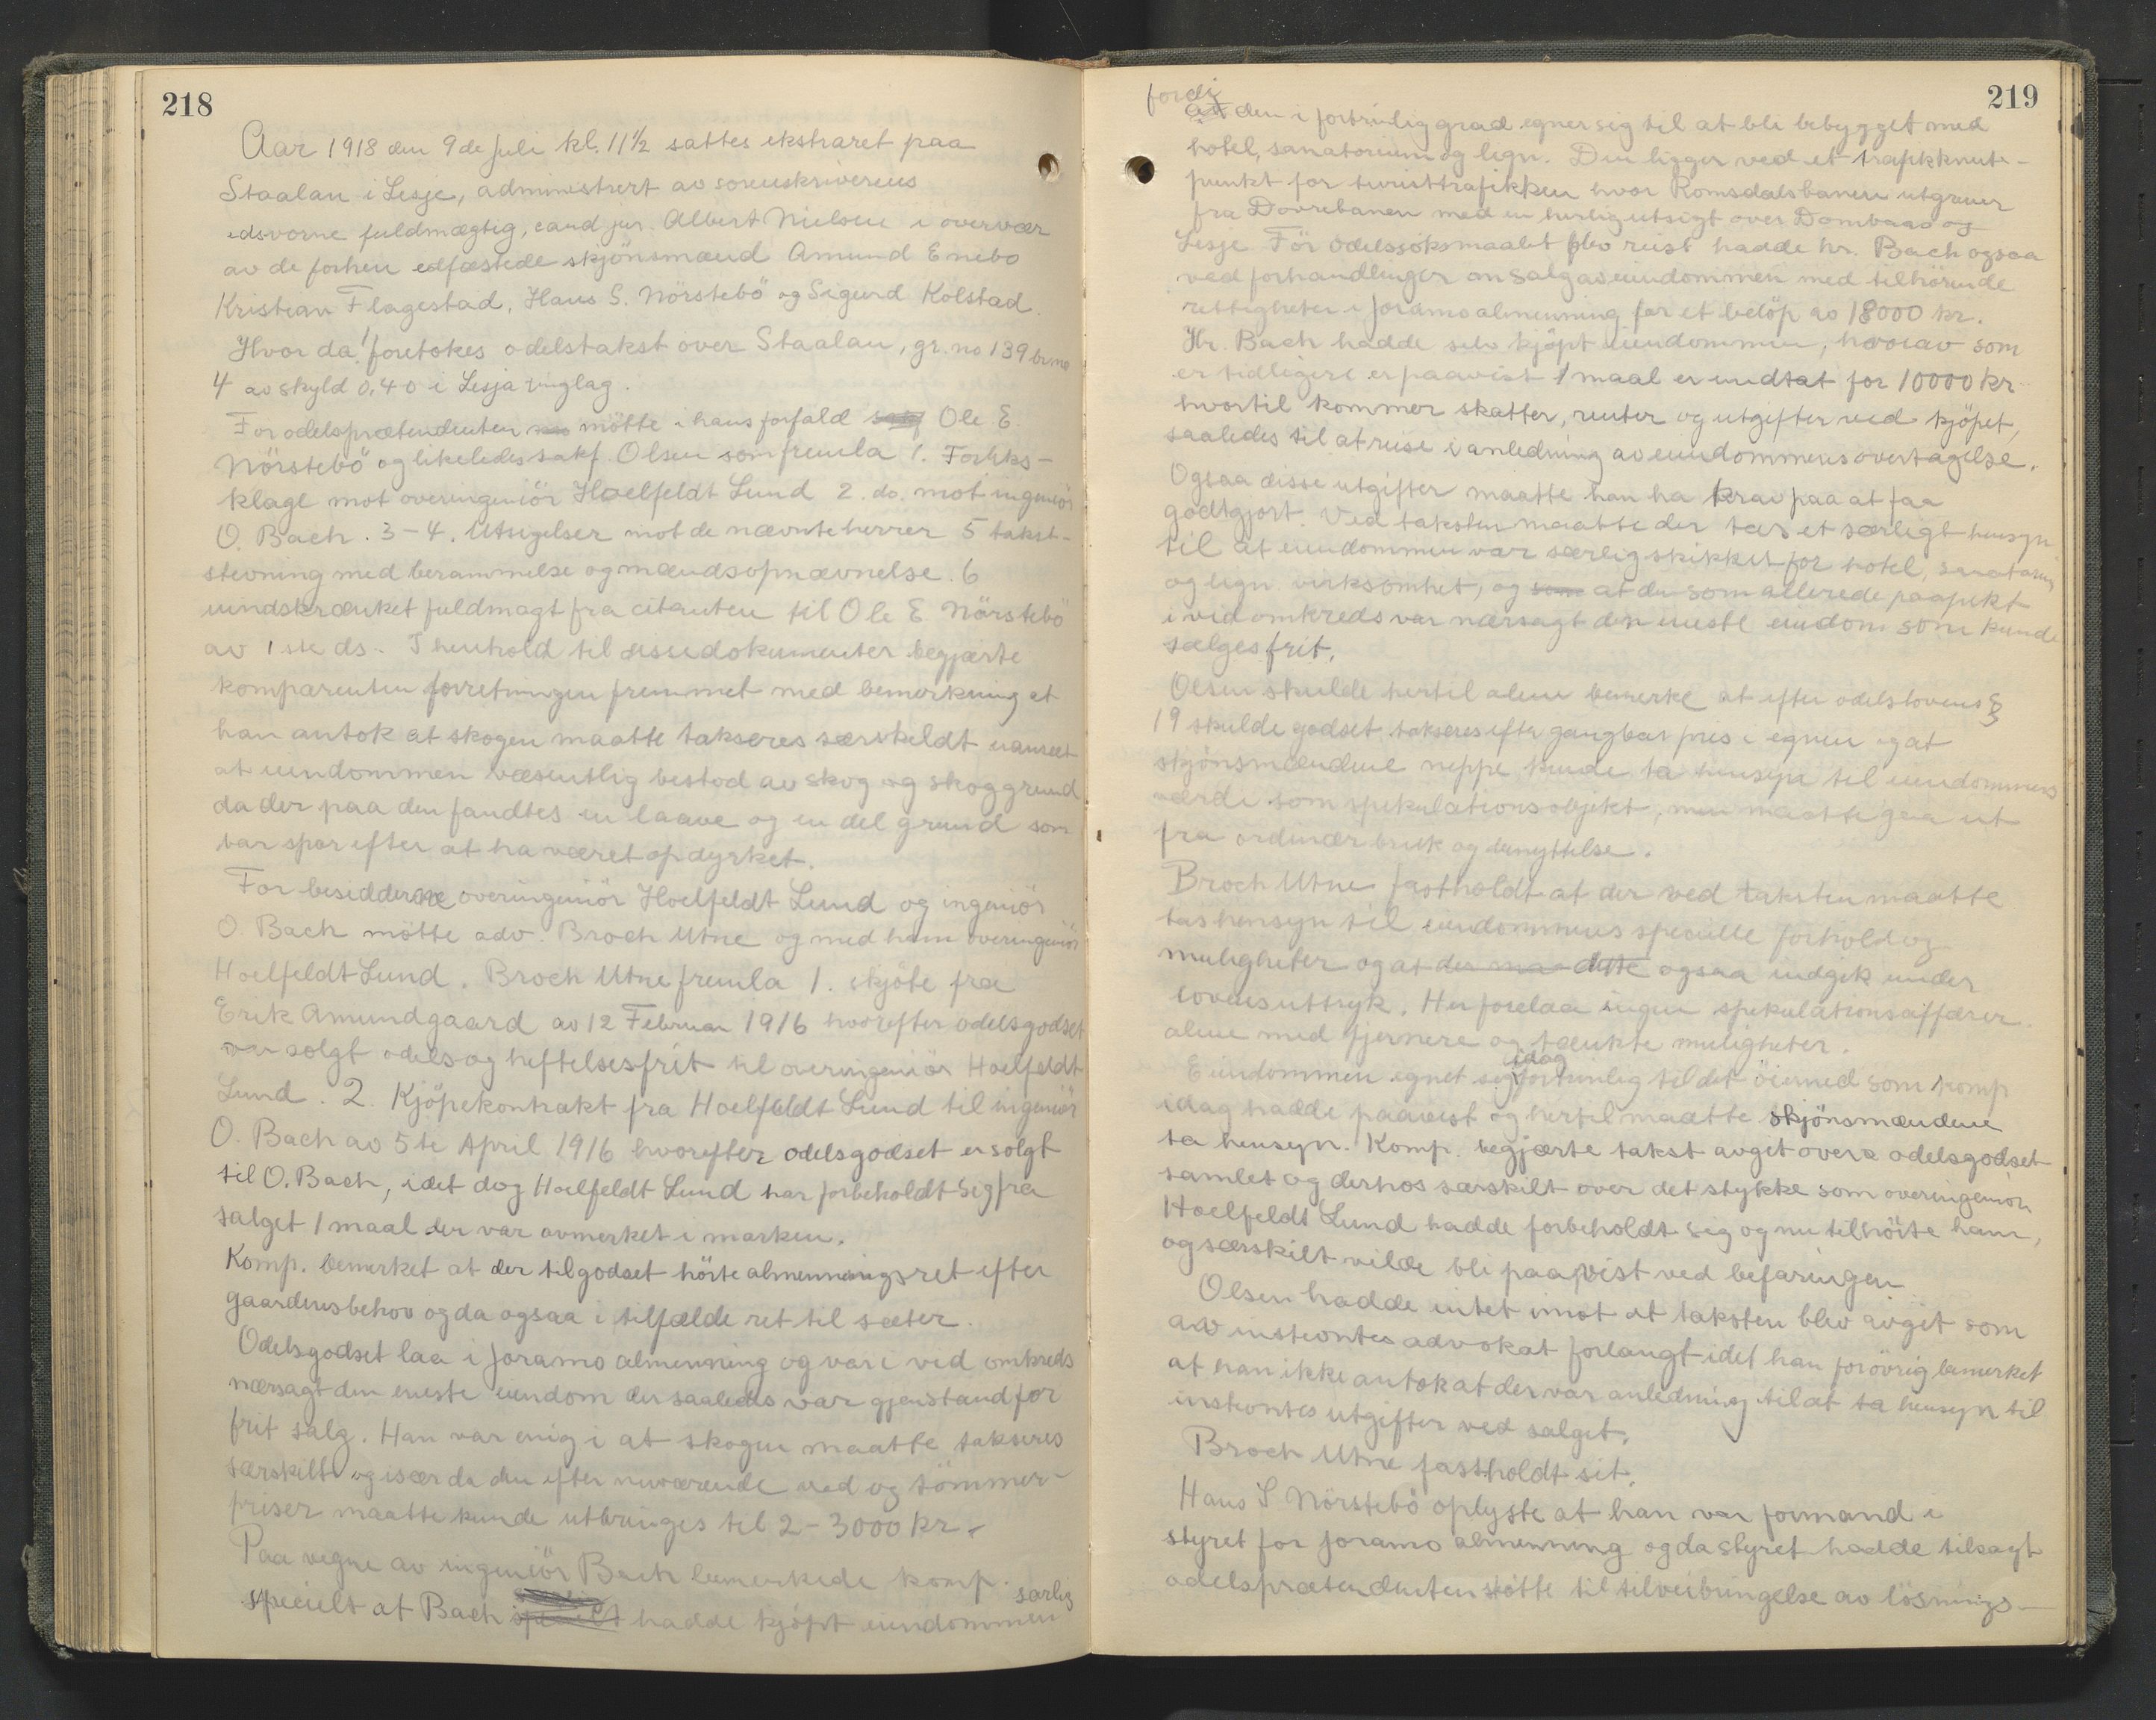 218
Aar 1918 den 9de Juli kl. 11½ sattes ekstraret paa
Staalan i Lesje, administrert av sorenskriverens
edsvorne fuldmægtig, cand jur. Albert Nielsen i overvær
av de forhen edfæstede skjönsmænd Amund Enebo
Kristian Flagestad, Hans S. Nörstebö og Sigurd Kolstad.
Hvor da! foretokes odelstakst over Staalan, gr. no 139 br no
4 av skyld 0,40 i Lesja tinglag.
For odelsprætendenten mötte i hans forfald Ole E.
Nörstebö og likeledes sakf. Olsen som fremla 1. Forliks-
klage mot overingeniör Hoelfeldt Lund 2. do. mot ingeniör
O. Bach. 3-4. Utsigelser mot de nævnte herrer 5 takst-
stevning med berammelse og mændsopnævnelse. 6
uindskrænket fuldmagt fra citanten til Ole E. Nörstebö
av 1ste ds. I henhold til disse dokumenter begjærte
komparenten forretningen fremmet med bemerkning at
han antok at skogen maatte takseres særskildt uanseet
at eiendommen væsentlig bestod av skog og skoggrund
da der paa den fandtes en laave og en del grund som
bar spor efter at ha været opdyrket.
For besidderne overingeniör Hoelfeldt Lund og ingeniör
O. Bach mötte adv. Broch Utne og med ham overingeniör
Hoelfeldt Lund. Broch Utne fremla 1. skjöte fra
Erik Amundgaard av 12 Februar 1916 hvorefter odelsgodset
var solgt odels og heftelsesfrit til overingeniör Hoelfeldt
Lund. 2. Kjöpekontrakt fra Hoelfeldt Lund til ingeniör
O. Bach av 5te April 1916 hvorefter odelsgodset er solgt
til O. Bach, idet dog Hoelfeldt Lund har forbeholdt sig fra
salget 1 maal der var avmerket i marken.
Komp. bemerket at der til godset hörte almenningsret efter
gaardens behov og da ogsaa i tilfælde ret til sæter.
Odelsgodset laa i Joramo almenning og var i vid omkreds
nærsagt den eneste eiendom der saaledes var gjenstand for
frit salg. Han var enig i at skogen maatte takseres
særskilt og især da den efter nuværende ved og tömmer-
priser maatte kunde utbringes til 2-3000 kr.
Paa vegne av ingeniör Bach bemerkede komp.
specielt at Bach specielt hadde kjöpt eiendommen særlig
219
fordi
at den i fortrinlig grad egner sig til at bli bebygget med
hotel, sanatorium og lign. Den ligger ved et trafikknute-
punkt for turisttrafikken hvor Romsdalsbanen utgrener
fra Dovrebanen med en herlig utsigt over Dombaas og
Lesje. För odelssöksmaalet blev reist hadde hr. Bach ogsaa
ved forhandlinger om salg av eiendommen med tilhörende
rettigheter i Joramo almenning for et belöp av 18000 kr.
Hr. Bach hadde selv kjöpt eiendommen, hvorav som
er tidligere er paavist 1 maal er undtat for 10000 kr
hvortil kommer skatter, renter og utgifter ved kjöpet,
saaledes til at reise i anledning av eiendommens overtagelse.
Ogsaa disse utgifter maatte han ha krav paa at faa
godtgjort. Ved taksten maatte der tas et særligt hensyn
til at eiendommen var særlig skikket for hotel, sanatorium
og lign. virksomhet, og som at den som allerede paapekt
i vid omkreds var nærsagt den eneste eiendom som kunde
sælges frit.
Olsen skulde hertil alene bemerke at efter odelslovens §
19 skulde godset takseres efter gangbar pris i egnen og at
skjönsmændene neppe kunde ta hensyn til eiendommens
værdi som spekulationsobjekt, men maatte gaa ut
fra ordinær bruk og benyttelse.
Broch Utne fastholdt at der ved taksten maatte
tas hensyn til eiendommens specielle forhold og
muligheter og at der maa dette ogsaa indgik under
lovens uttryk. Her forelaa ingen spekulationsaffærer
alene med fjernere og tænkte muligheter.
idag
Eiendommen egnet sig fortrinlig til det öiemed som komp
idag hadde paavist og hertil maatte skjönsmændene
ta hensyn. Komp. begjærte takst avget over odelsgodset
samlet og derhos særskilt over det stykke som overingeniör
Hoelfeldt Lund hadde forbeholdt sig og nu tilhörte ham,
og særskilt vilde bli paavist ved befaringen
Olsen hadde intet imot at taksten blev avgit som
av insteventes advokat forlangt idet han forövrig bemerket
at han ikke antok at der var anledning til at ta hensyn til
insteventes utgifter ved salget.
Broch Utne fastholdt sit.
Hans S Nörstebö oplyste at han var formand i
styret for Joramo almenning og da styret hadde tilsagt
odelsprætendenten stötte til tilveiebringelse av lösnings-